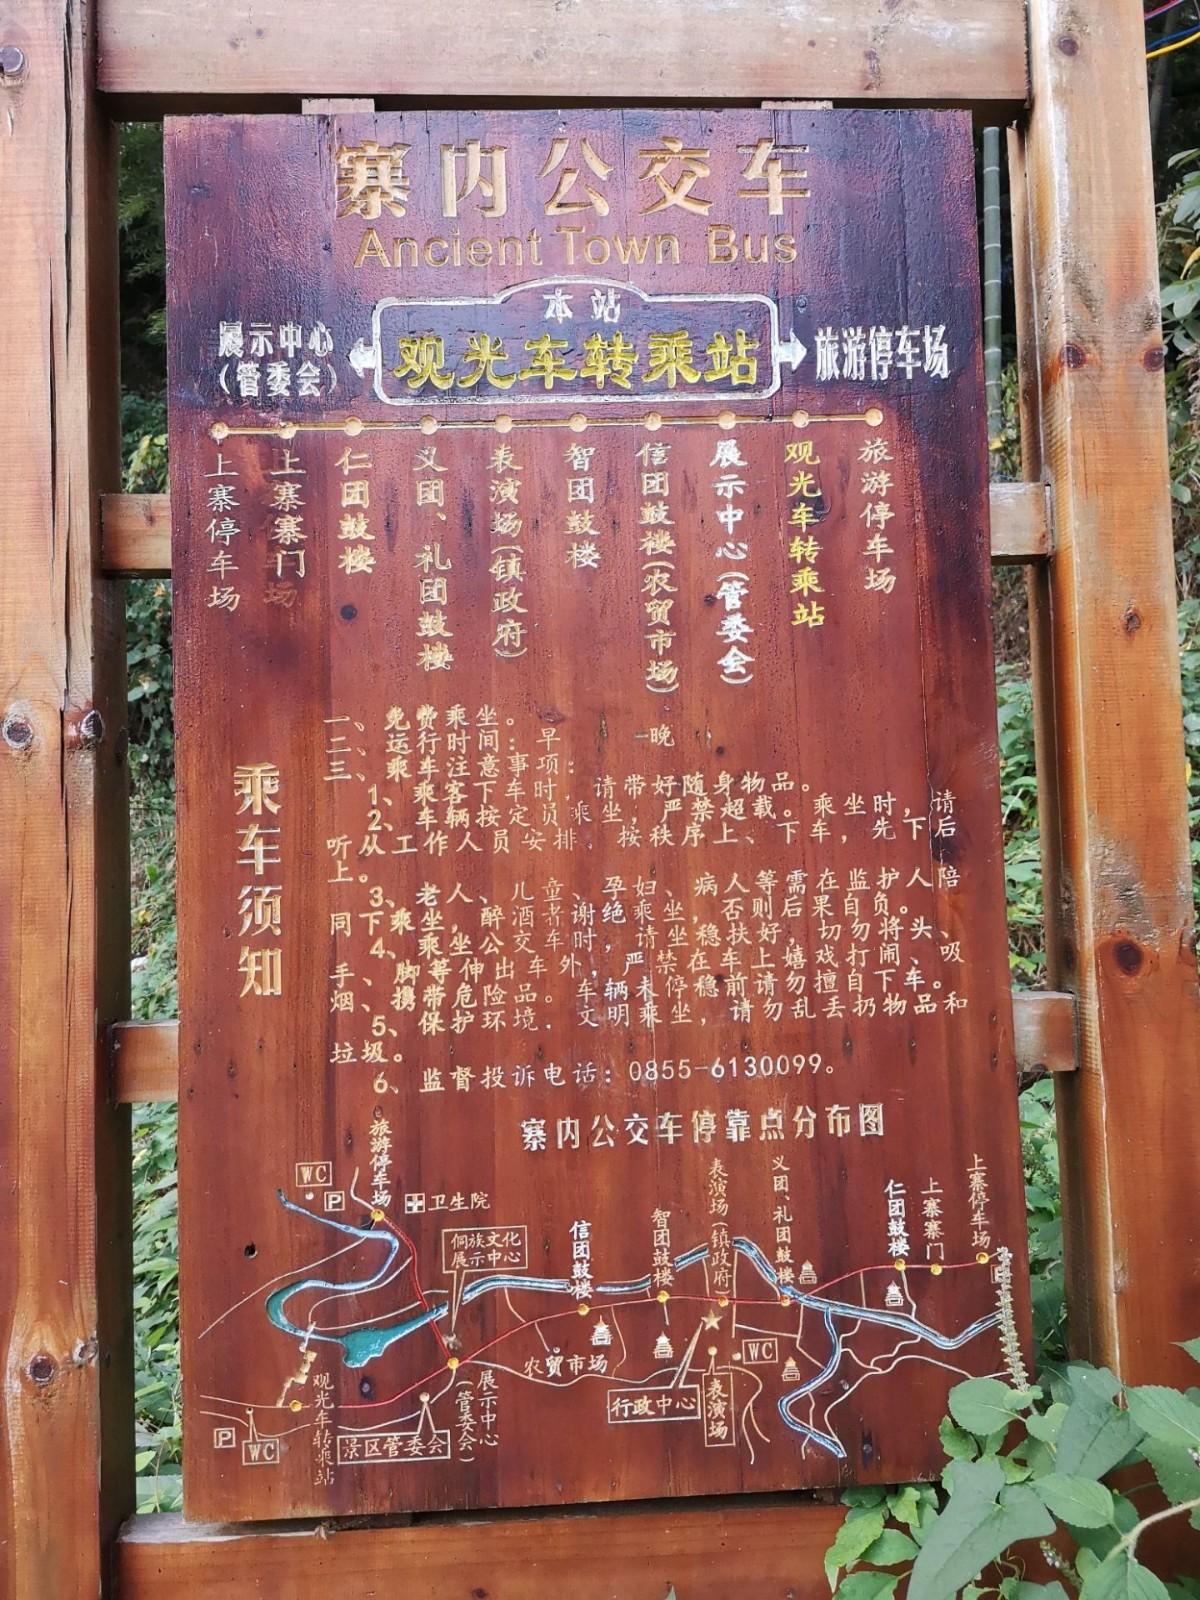 寨内公交车
Ancient Town Bus
本站
展示中心
(管委会)
观光车转乘站
旅游停车场
上寨停车场
上寨寨门
仁团鼓楼
义团、礼团鼓楼
表演场(镇政府)
智团鼓楼
信团鼓楼(农贸市场)
展示中心(管委会)
观光车转乘站
旅游停车场
乘车须知
一、免费乘坐。
二、运行时间：早 -晚
三、乘车注意事项：
1、乘客下车时，请带好随身物品。
2、车辆按定员乘坐，严禁超载。乘坐时，请
听从工作人员安排，按秩序上、下车，先下后
上。
3、老人、儿童、孕妇、病人等需在监护人陪
同下乘坐，醉酒者谢绝乘坐，否则后果自负。
4、乘坐公交车时，请坐稳扶好，切勿将头、
手、脚等伸出车外，严禁在车上嬉戏打闹、吸
烟、携带危险品。车辆未停稳前请勿擅自下车。
5、保护环境，文明乘坐，请勿乱丢扔物品和
垃圾。
6、监督投诉电话：0855-6130099。
寨内公交车停靠点分布图
旅游停车场
WC
P
卫生院
侗族文化
展示中心
信团鼓楼
智团鼓楼
表演场(镇政府)
义团、礼团鼓楼
仁团鼓楼
上寨寨门
上寨停车场
农贸市场
WC
行政中心
表演场
观光车转乘站
展示中心
(管委会)
景区管委会
P
WC